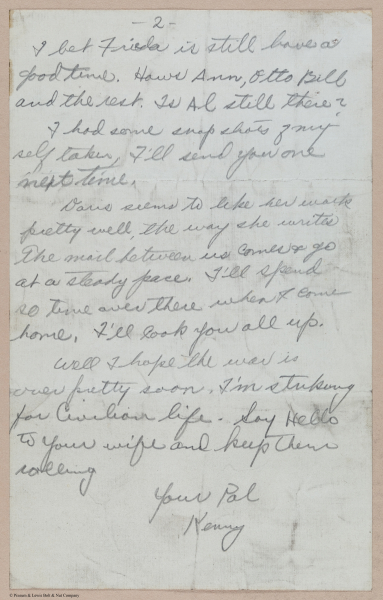 - 2 -
I bet Frieda is still have a
good time. Hows Ann, Otto Bill
and the rest. Is Al still there?
I had some snap shots of my
self taken, I'll send you one
next time.
seems to like her work
pretty well, the way she writes
The mail between us comes & go
at a steady pace. I'll spend
so time over there when I come
home, I'll look you all up.
Well I hope the war is
over pretty soon. I'm striking
for Civilian life - Say Hello
to your wife and keep them
rolling
Your Pal
Kenny
© Pioneer & Lewis Bolt & Nut Company